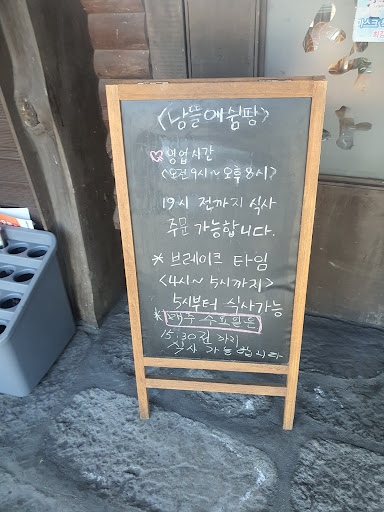 <낭뜰에쉼팡>
영업시간
<오전9시~오후8시>
19시 전까지 식사
주문 가능합니다.
* 브레이크 타임
<4시~5시까지>
5시부터 식사가능
* 매주 수요일은
15:30전 까지
식사 가능합니다